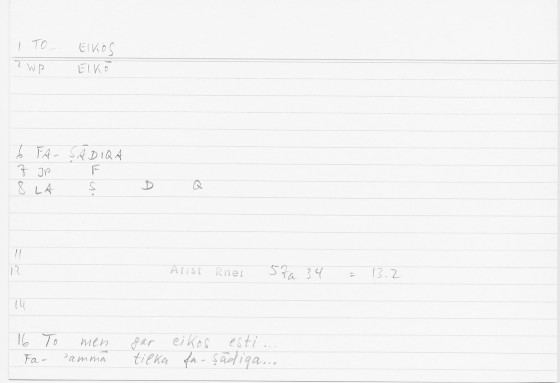 1 TO_ EIKOS
2 WP EIKŌ
6 FA- ṢĀDIQA
7 JP F
8 LA Ṣ D Q
11
12 Arist Rhet 57a 34 = 13.2
14
16 To men gar eikos esti...
Fa- 'ammā tilka fa-ṣādiqa...